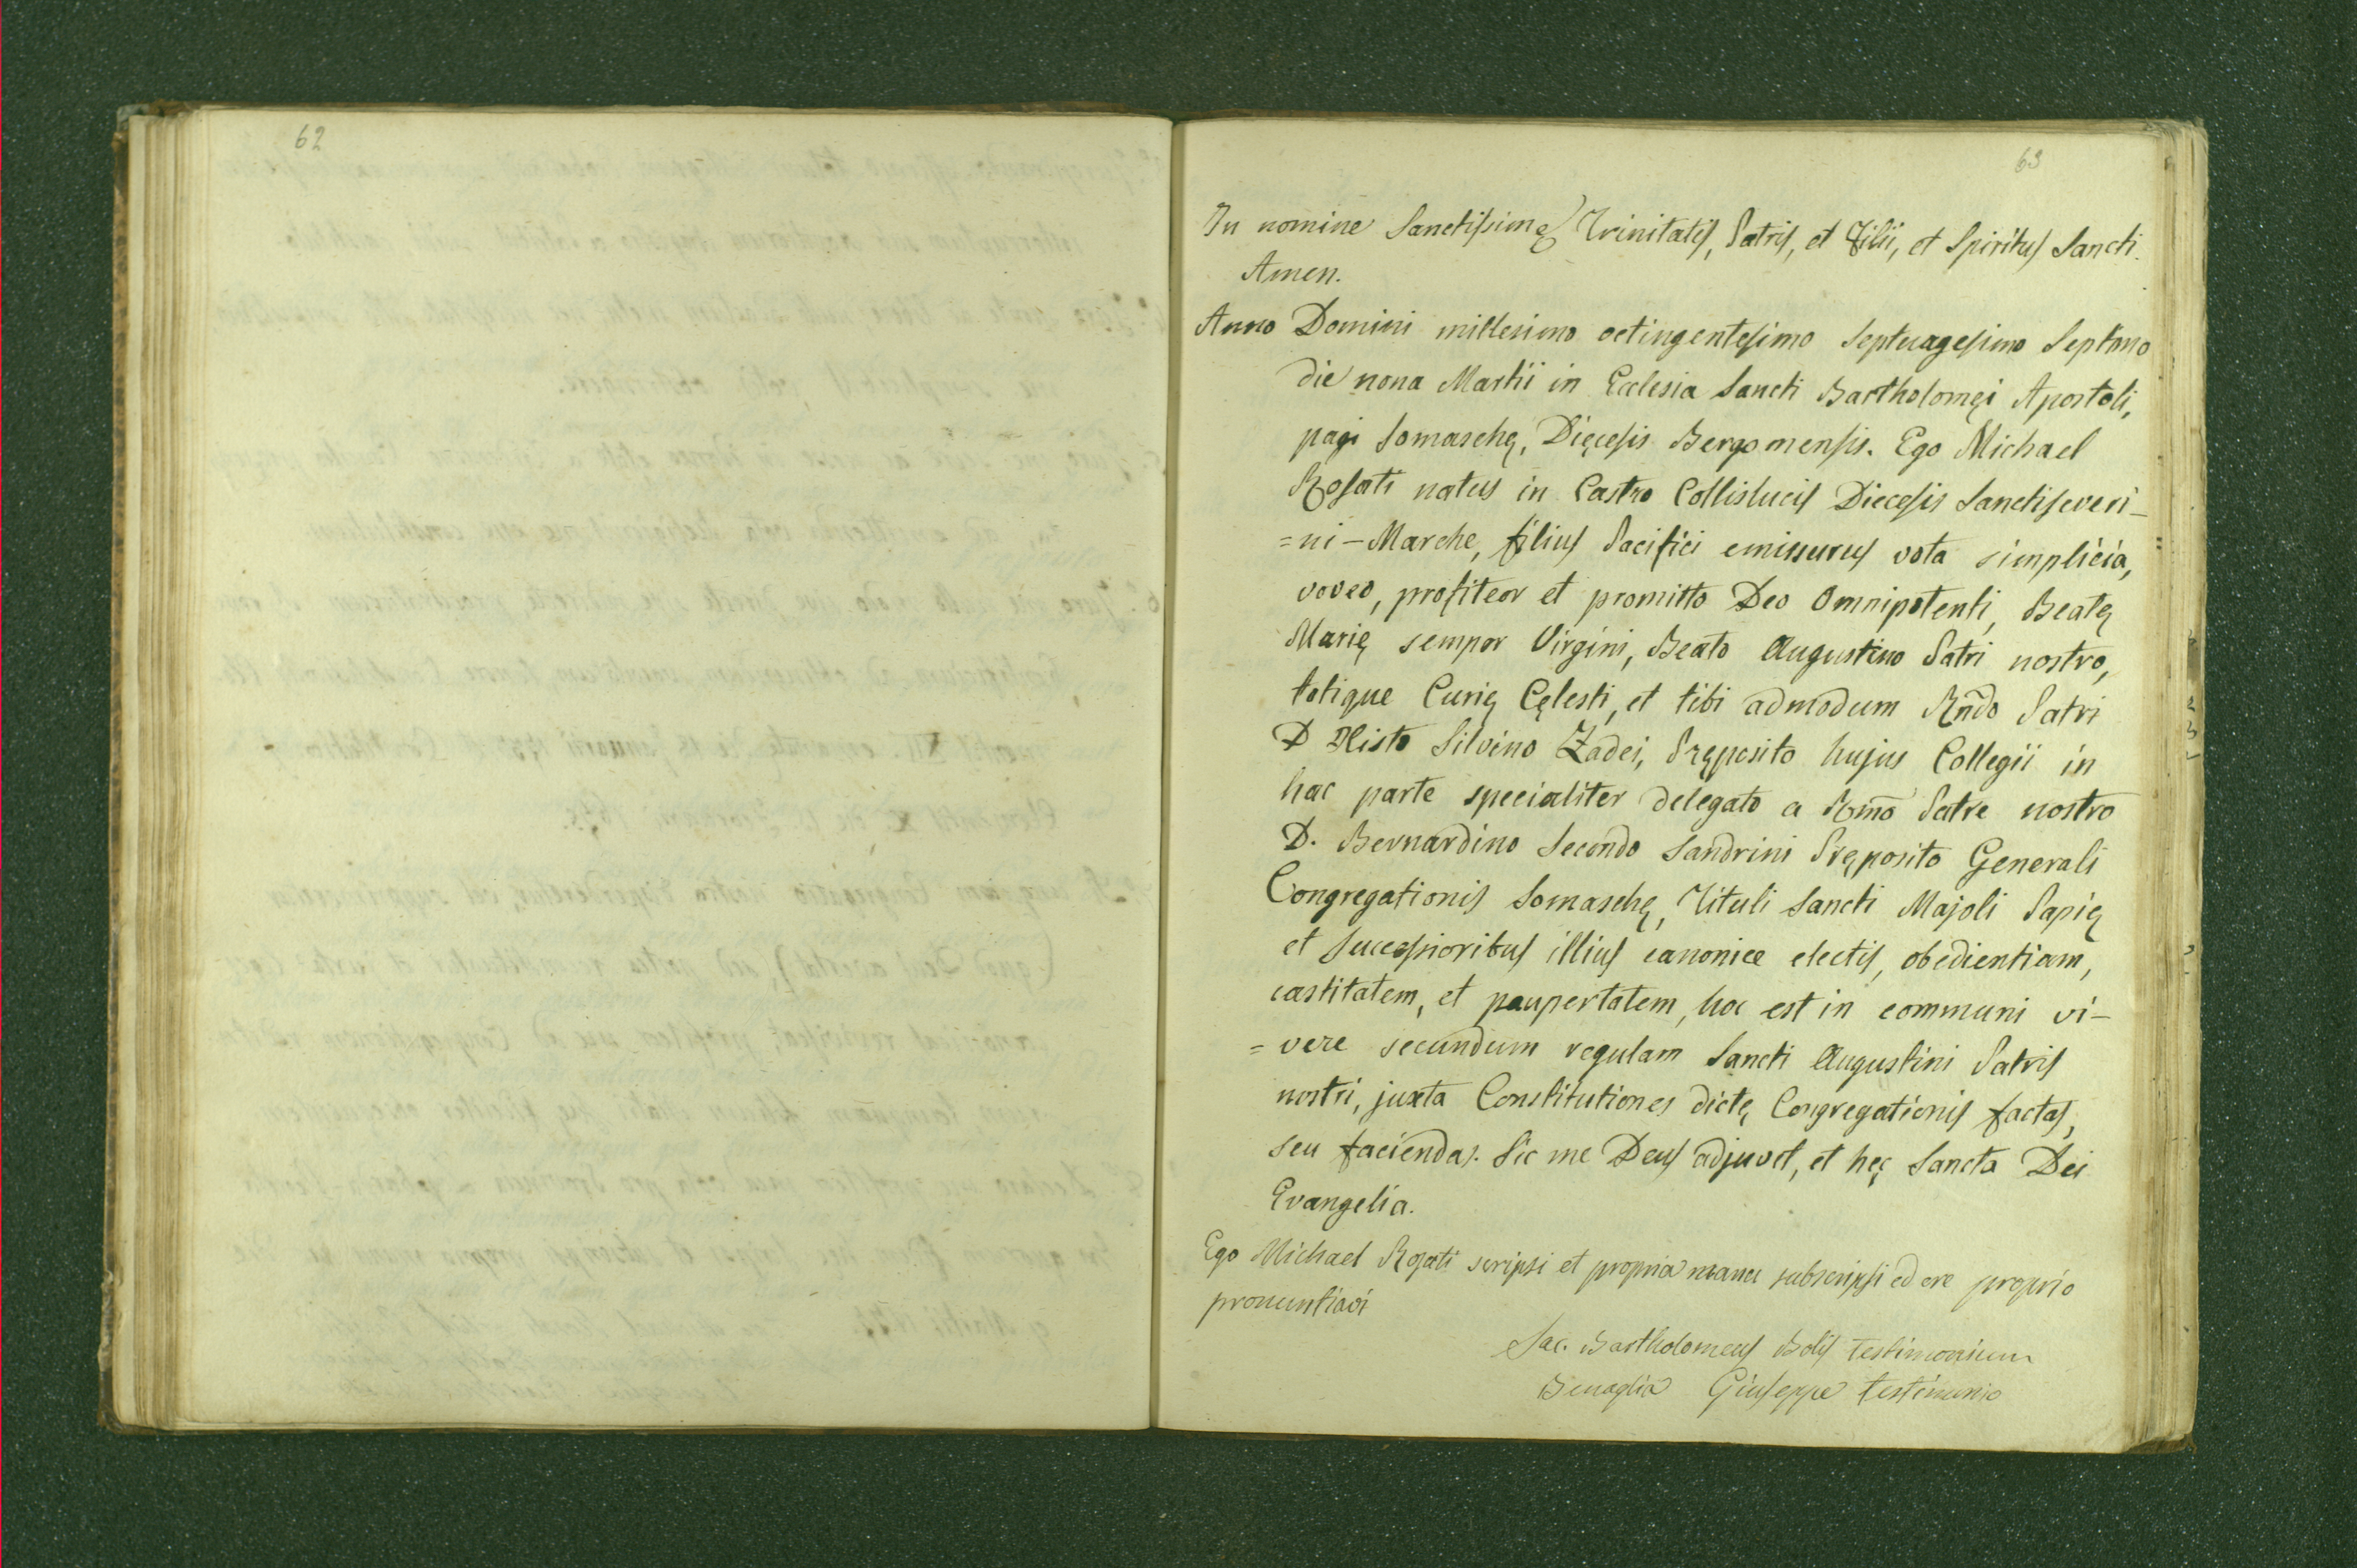 62
63
In nomine Sanctissimę Trinitatis, Patris, et Filii, et Spiritus Sancti.
Amen.
Anno Domini millesimo octingentesimo septuagesimo septimo
die nona Martii in Ecclesia Sancti Bartholomęi Apostoli,
pagi Somaschę, Dięcesis Bergomensis. Ego Michael
Rosati natus in Castro Collislucis Diecesis Sanctiseveri-
=ni-Marche, filius Pacifici emissurus vota simplicia,
voveo, profiteor et promitto Deo Omnipotenti, Beatę
Marię semper Virgini, Beato Augustino Patri nostro,
totique Curię Cęlesti, et tibi admodum Rñdo Patri
D Xisto Silvino Zadei, Pręposito hujus Collegii in
hac parte specialiter delegato a Rm̃o Patre nostro
D. Bernardino Secondo Sandrini Pręposito Generali
Congregationis Somaschę, Tituli Sancti Majoli Papię
et successioribus illius canonice electis, obedientiam,
castitatem, et paupertatem, hoc est in communi vi-
=vere secundum regulam Sancti Augustini Patris
nostri, juxta Constitutiones dictę Congregationis factas,
seu faciendas. Sic me Deus adjuvet, et hęc Sancta Dei
Evangelia.
Ego Michael Rosati scripsi et propria manu subscripsi ed ore proprio
pronuntiavi
Sac. Bartholomeus Bolis testimonium
Benaglia Giuseppe testimonio